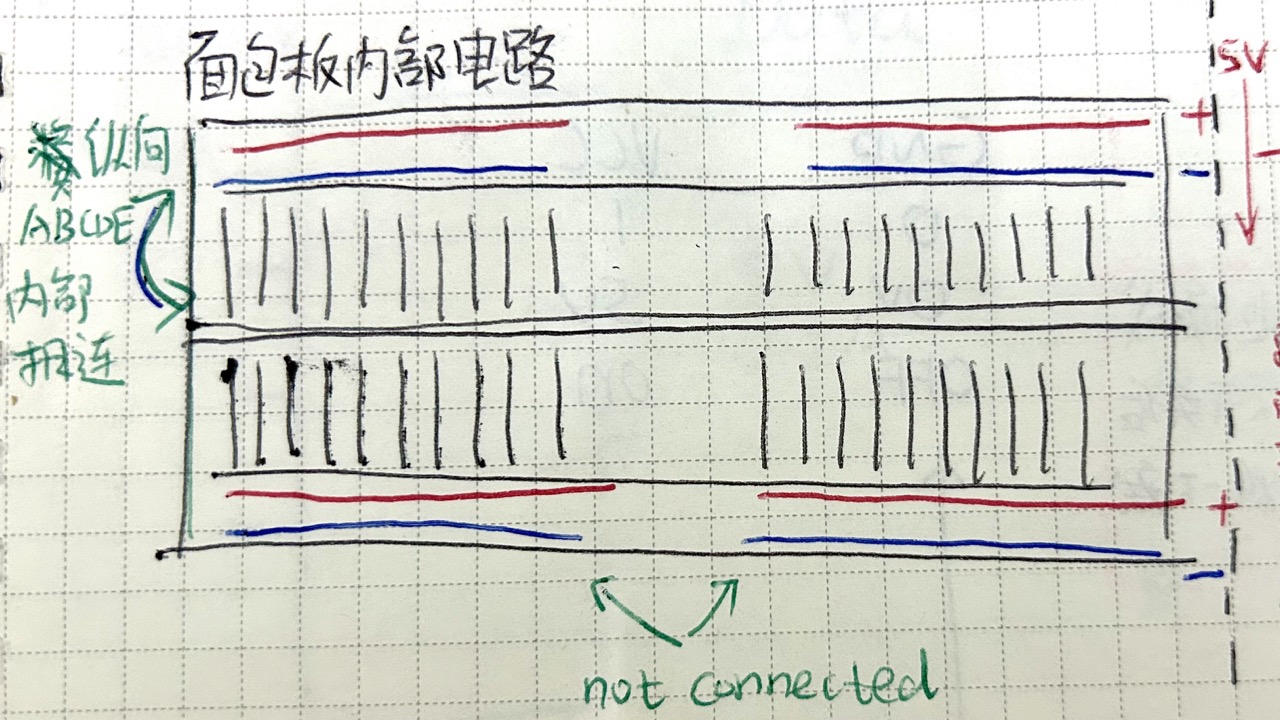 面包板内部电路
5V
+
纵向
-
ABCDE
内部
相连
+
-
not connected